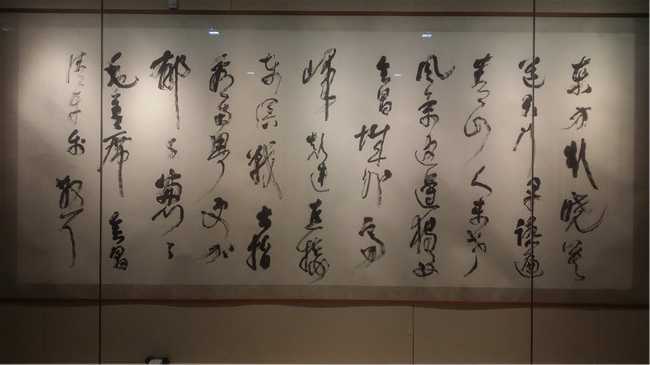 东方欲晓莫
道君行早踏遍
青山人未老
风景这边独好
会昌城外高
峰颠连直接
东溟战士指
看南粤更加
郁々葱々
毛主席会昌
清平乐